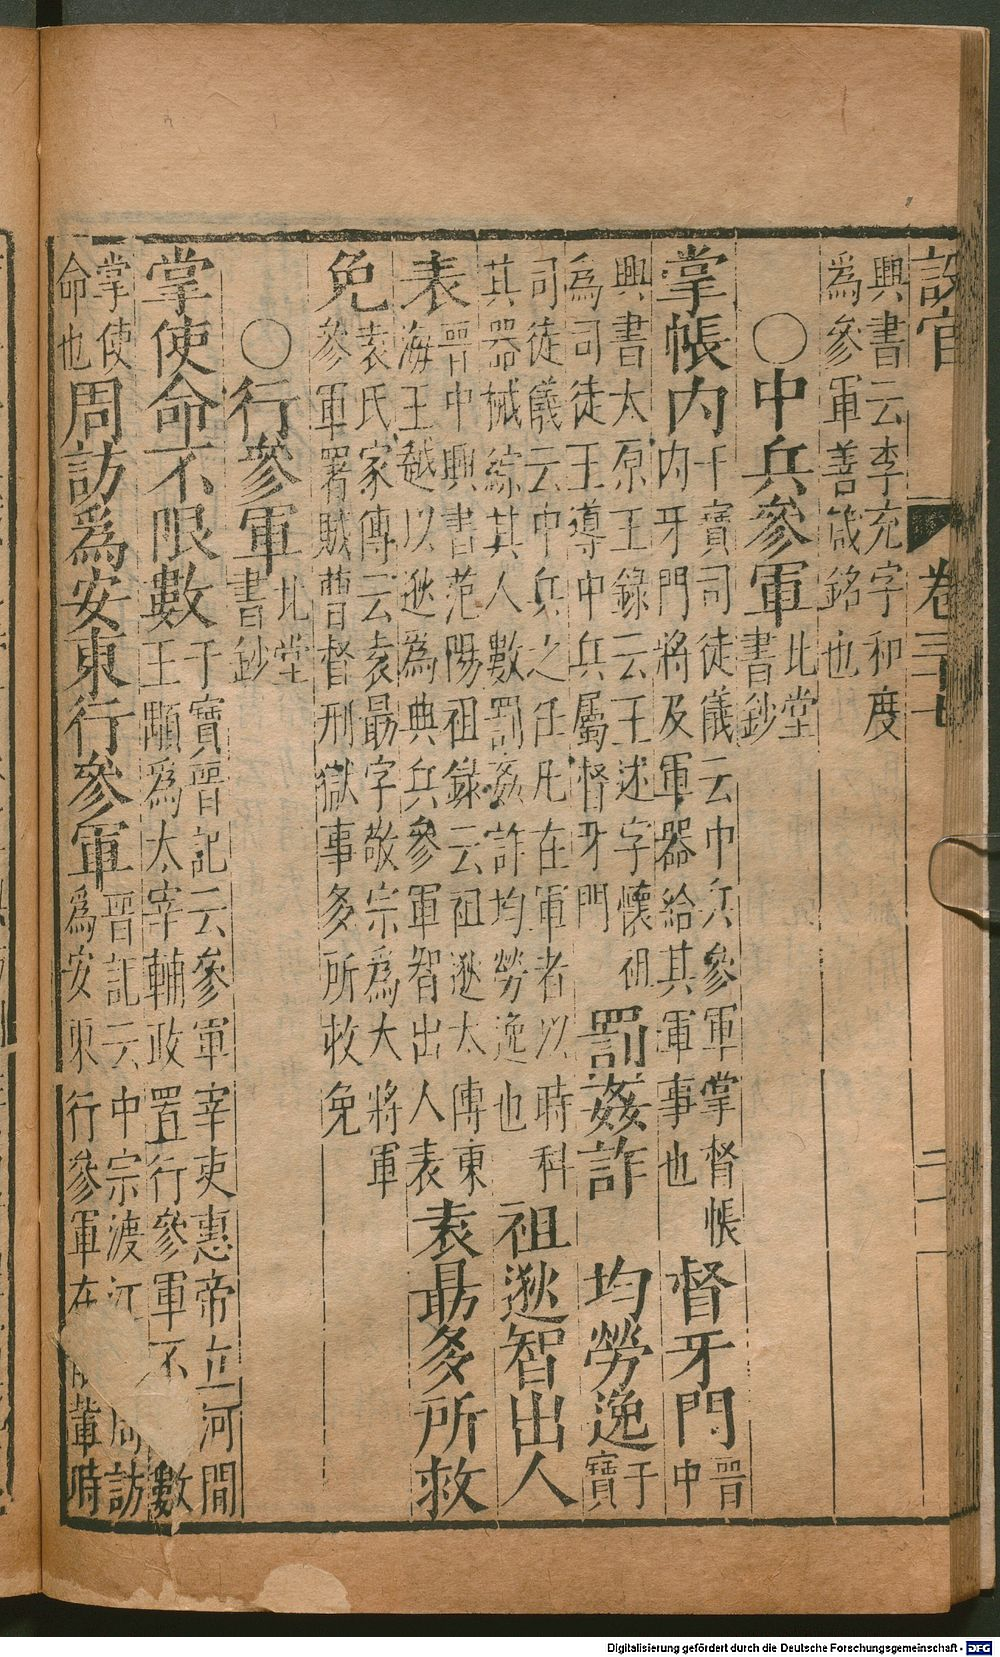 設官 卷三 二一
興書云李充字和度
爲參軍善箴銘也
○中兵參軍北堂書鈔
掌帳内干寶司徒儀云中兵參軍掌督帳内牙門將及軍器給其軍事也督牙門晉中
興書太原王錄云王述字懷祖爲司徒王導中兵屬督牙門罰姦詐 均勞逸于寶
司徒儀云中兵之任凡在軍者以時科其器械綜其人數罰姦詐均勞逸也祖逖智出人
表晉中興書范陽祖錄云祖逖太傅東海王越以逖爲典兵參軍智出人表袁朂多所救
免袁氏家傳云袁朂字敬宗爲大將軍參軍署賊曹督刑獄事多所救免
○行參軍北堂書鈔
掌使命不限數于寶晉記云參軍宰吏惠帝立河間王顒爲太宰輔政置行參軍不數
掌使命也周訪爲安東行參軍晉記云中宗渡江周訪爲安東行參軍在輩時
Digitalisierung gefördert durch die Deutsche Forschungsgemeinschaft - DFG